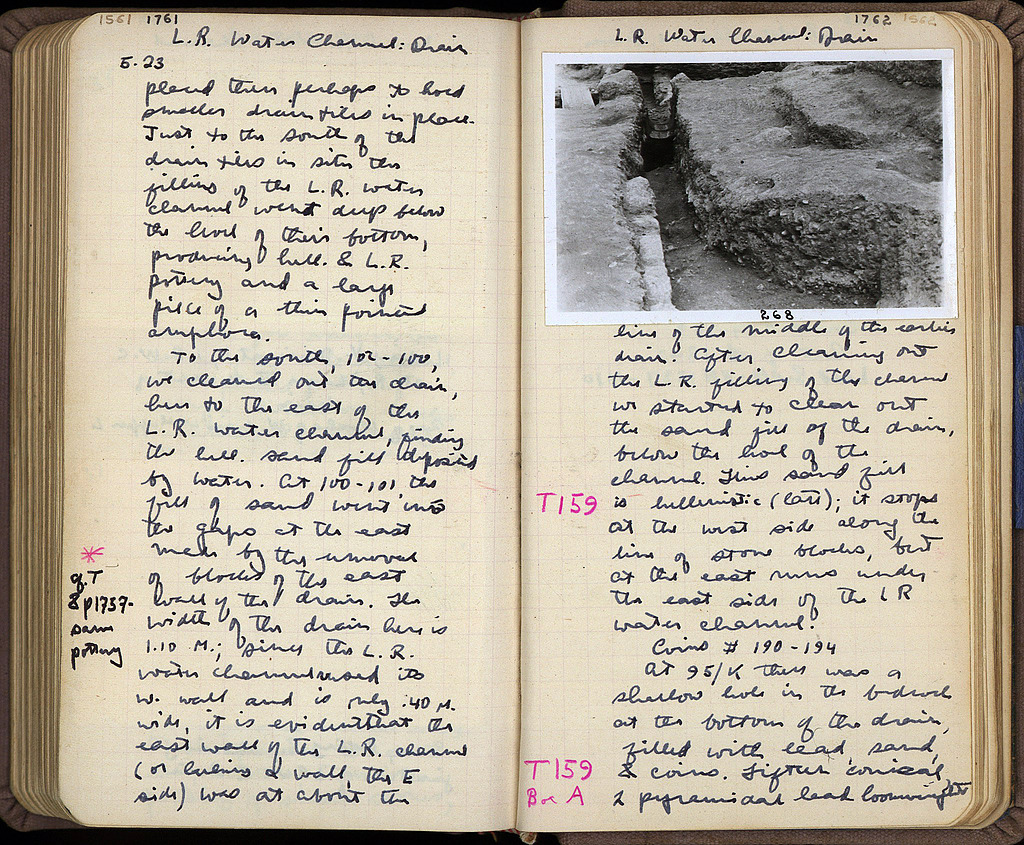 1561 1761
L.R. Water Channel: Drain
5.23
placed there perhaps to hold
smaller drain tiles in place.
Just to the south of the
drain tiles in situ the
filling of the L.R. water
channel went deep below
the level of their bottom,
producing hell. & L.R.
pottery and a large
piece of a thin pointed
amphora.
To the south, 102-100,
we cleaned out the drain,
here to the east of the
L.R. water channel, finding
the hell. sand fill deposited
by water. At 100-101, the
fill of sand went into
the gaps at the east
made by the removal
of blocks of the east
wall of the drain. The
width of the drain here is
1.10 M.; since the L.R.
water channel reused its
w. wall and is only .40 M.
wide, it is evident that the
east wall of the L.R. channel
(or lacking a wall, the E
side) was at about the
*
cf. T
& p1757-
same
pottery
1762 1562
L.R. Water Channel: Drain
268
line of the middle of the earlier
drain. After cleaning out
the L.R. filling of the channel
we started to clean out
the sand fill of the drain,
below the level of the
channel. This sand fill
T159 is hellenistic (late); it stops
at the west side along the
line of stone blocks, but
at the east runs under
the east side of the LR
water channel.
Coins # 190-194
At 95/K there was a
shallow hole in the bedrock
at the bottom of the drain,
filled with lead, sand,
T159 & coins. Fifteen conical,
Box A 2 pyramidal lead loomweights